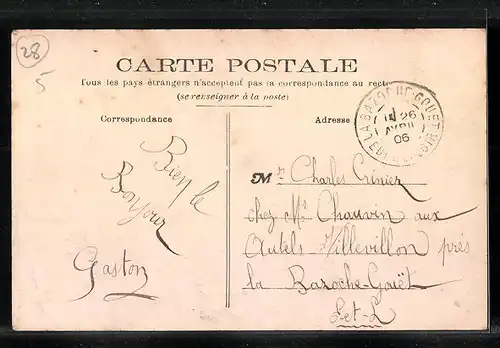 28
5
CARTE POSTALE
Tous les pays étrangers n'acceptent pas la correspondance au recto
(se renseigner à la poste)
Correspondance
Adresse
LA BAZOCHE-GOUET
26
AVRIL
06
EURE-ET-LOIR
Bien le
Bonjour
Gaston
Mr Charles Crinier
chez Mr Chauvin aux
Autels Villevillon près
la Bazoche-Gouët
E-et-L